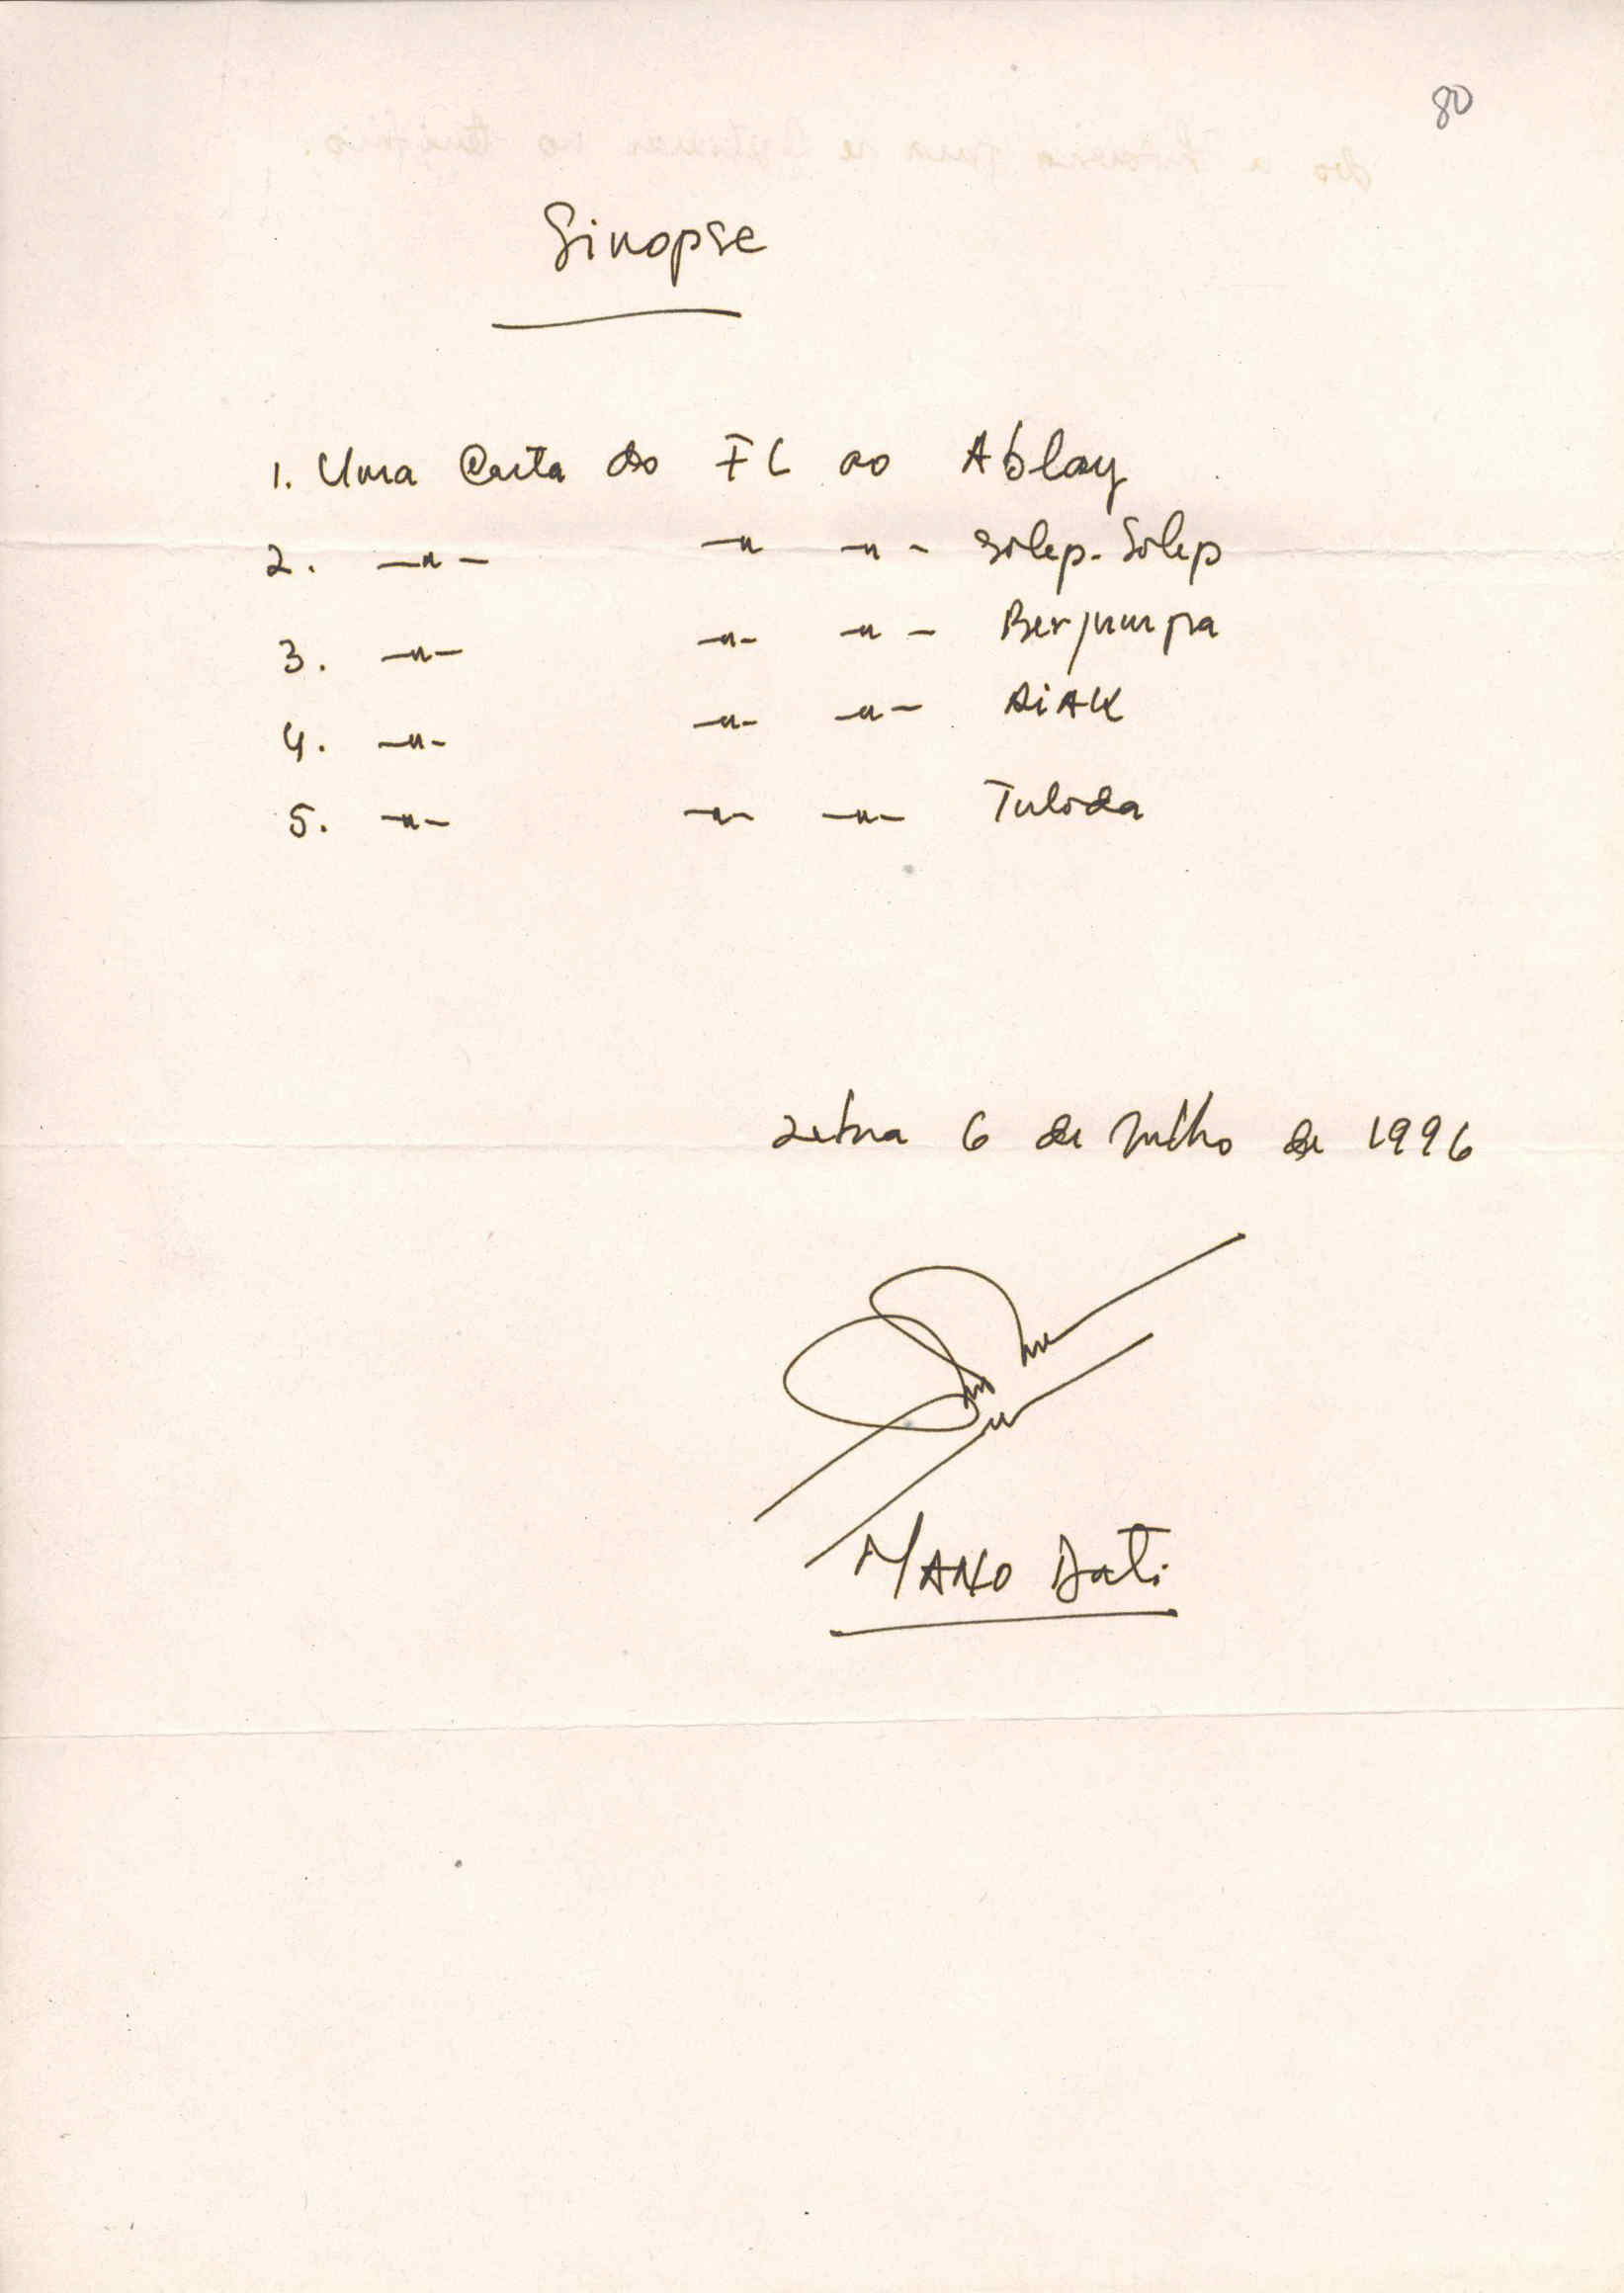 80
Sinopse
1. Uma Carta do FC ao Ablay
2. —"— —" —"— Solep-Solep
3. —"— —"— —"— Berjumpa
4. —"— —"— —"— AiAK
5. —"— —"— —"— Tuloda
6 de Julho de 1996
MANO Dati